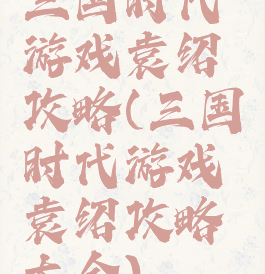 三国时代
游戏袁绍
攻略(三国
时代游戏
袁绍攻略
大全)